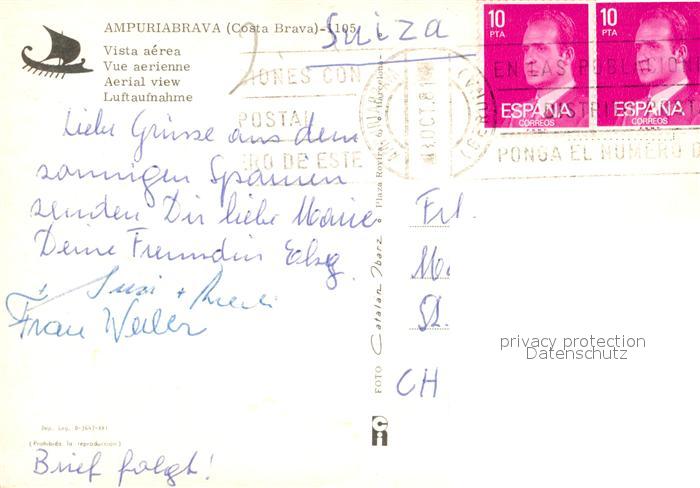 AMPURIABRAVA (Costa Brava)-1105
Vista aérea
Vue aerienne
Aerial view
Luftaufnahme
Suiza
10
PTA
ESPAÑA
CORREOS
10
PTA
ESPAÑA
CORREOS
IONES CON
POSTAL
RO DE ESTE
EN LAS POBLACION
DISTRI
PONGA EL NUMERO D
OCT
Liebe Grüsse aus dem
sonnigen Spanien
senden Dir liebe Marie
Deine Freundin
+ Susi +
Frau Weiler
Frl.
M
St.
CH
FOTO Catalan Ibarz • Plaza Rovira, 6 • Barcelona
privacy protection
Datenschutz
Ci
Dep. Leg. B-
(Prohibida la reproducción)
Brief folgt!